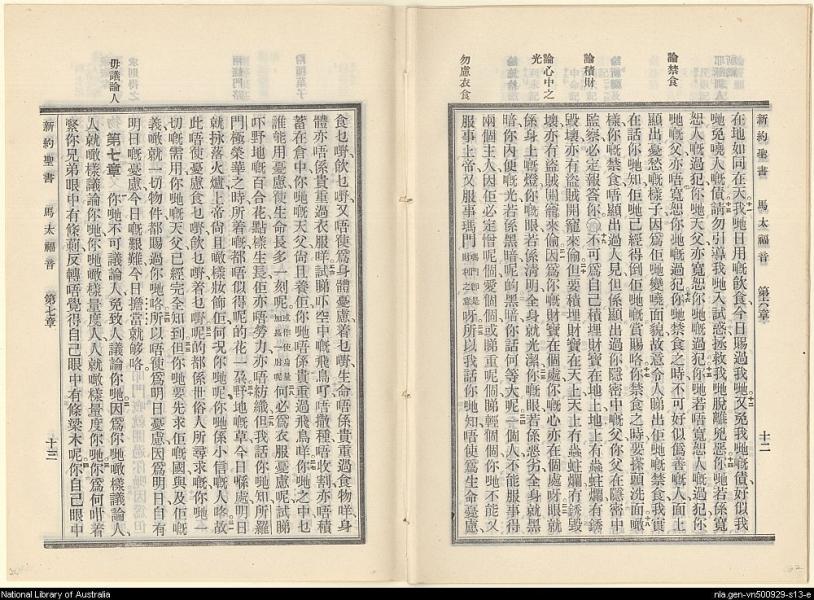 新約聖書 馬太福音 第六章 十二
論禁食
論積財
論心中之
光
勿慮衣食
在地如同在天我哋日用嘅飲食今日賜過我哋又免我哋嘅債好似我
哋免曉人嘅債請勿引導我哋入試惑拯救我哋脫離兇惡你哋若係寬
恕人嘅過犯你哋天父亦寬恕你哋嘅過犯你哋若唔寬恕人嘅過犯你
哋嘅父亦唔寬恕你哋嘅過犯你哋禁食之時不可好似僞善嘅人面上
顯出憂愁嘅樣子因爲佢哋變曉面貌故意令人睇出佢哋嘅禁食我實
在話你哋知佢哋已經得倒佢哋嘅賞賜咯你禁食之時要搽頭洗面噉
樣你嘅禁食唔顯出過人見但係顯出過你隱密中嘅父你父在隱密中
監察必定報答你○不可爲自己積埋財寶在地上地上有蟲蛀爛有銹
毀壞亦有盜賊開窿來偷但要積埋財寶在天上天上冇蟲蛀爛冇銹毀
壞亦冇盜賊開窿來偷因爲你嘅財寶在個處你嘅心亦在個處呀眼就
係身上嘅燈你嘅眼若係淸明全身就光潔你嘅眼若係惡劣全身就黑
暗你內便嘅光若係黑暗呢的黑暗你話何等大呢一個人不能服事得
兩個主人因佢必定憎呢個愛個個或睇重呢個睇輕個個你哋不能又
服事上帝又服事瑪門呀所以我話你哋知唔使爲生命憂慮
食乜嘢飲乜嘢又唔使爲身體憂慮着乜嘢生命唔係貴重過食物咩身
體亦唔係貴重過衣服咩試睇吓空中嘅飛鳥佢唔撒種唔收割亦唔積
蓄在倉中你哋嘅天父尙且養佢你哋唔係貴重過飛鳥咩你哋之中乜
誰能用憂慮使生命長多一刻呢何必爲衣服憂慮呢試睇
吓野地嘅百合花點樣生長佢亦唔勞力亦唔紡織但我話你哋知所羅
門極榮華之時所着嘅都唔似得呢的花一朶野地嘅草今日喺處明日
就抹落火爐上帝尙且噉樣妝飾佢何况你哋呢你哋係小信嘅人咯故
此唔使憂慮食乜嘢飲乜嘢着乜嘢呢的都係世俗人所尋求嘅你哋一
切嘅需用你哋嘅天父已經完全知到但你哋要先求佢嘅國與及佢嘅
義噉就一切物件都賜過你哋咯所以唔使爲明日憂慮因爲明日自有
明日嘅憂慮今日嘅艱難今日擔當就夠咯
第七章 你哋不可議論人免致人議論你哋因爲你哋噉樣議論人
人就噉樣議論你哋你哋噉樣量度人人就噉樣量度你哋你爲何吽着
緊你兄弟眼中有條䓪反轉唔覺得自己眼中有條樑木呢你自己眼中
毋議論人
新約聖書 馬太福音 第七章 十三
National Library of Australia
nla.gen-vn500929-s13-e